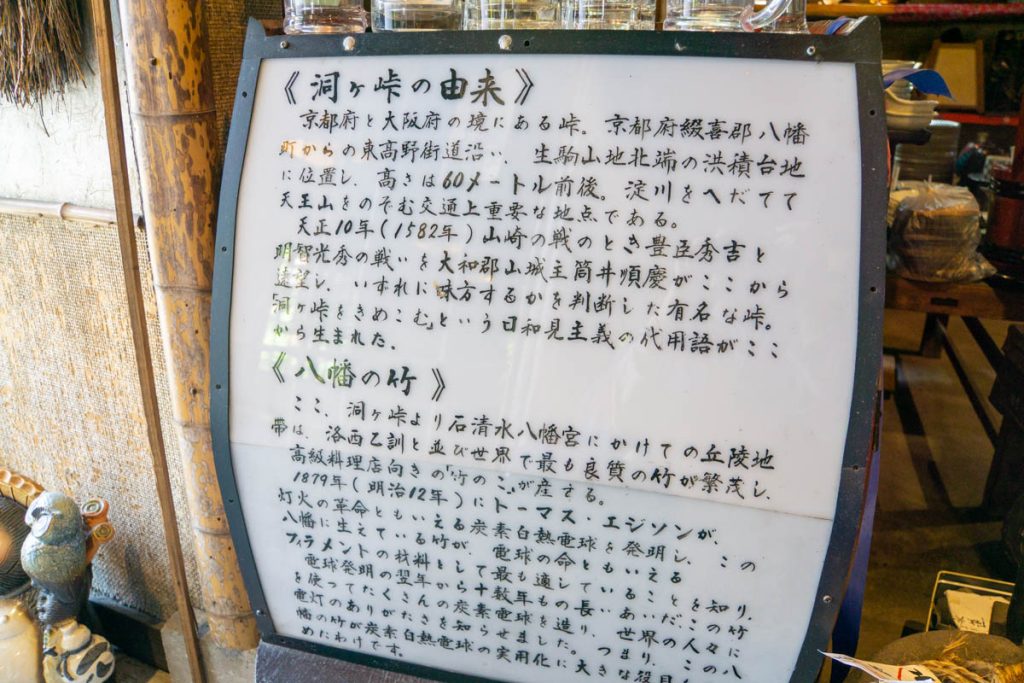 《洞ヶ峠の由来》
京都府と大阪府の境にある峠。京都府綴喜郡八幡
町からの東高野街道沿い、生駒山地北端の洪積台地
に位置し、高さは60メートル前後。淀川をへだてて
天王山をのぞむ交通上重要な地点である。
天正10年(1582年)山崎の戦のとき豊臣秀吉と
明智光秀の戦いを大和郡山城主筒井順慶がここから
遠望し、いずれに味方するかを判断した有名な峠。
「洞ヶ峠をきめこむ」という日和見主義の代用語がここ
から生まれた、
《八幡の竹》
ここ、洞ヶ峠より石清水八幡宮にかけての丘陵地
帯は、洛西乙訓と並び世界で最も良質の竹が繁茂し、
高級料理店向きの「竹のこ」が産する。
1879年(明治12年)にトーマス・エジソンが、
灯火の革命ともいえる炭素白熱電球を発明し、この
八幡に生えている竹が、電球の命ともいえる
フィラメントの材料として最も適していることを知り、
電球発明の翌年から十数年もの長いあいだ、この竹
を使ってたくさんの炭素電球を造り、世界の人々に
電灯のありがたさを知らせました。つまり、この八
幡の竹が炭素白熱電球の実用化に大きな役目
めたわけです。